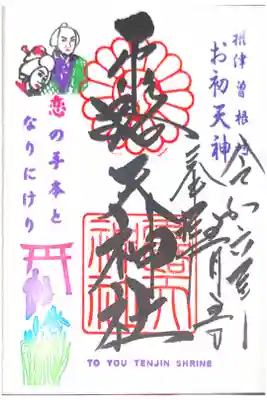 摂津 曽根崎
お初天神
令和六年
奉拝
露天神社
恋の手本と
なりにけり
TO YOU TENJIN SHRINE